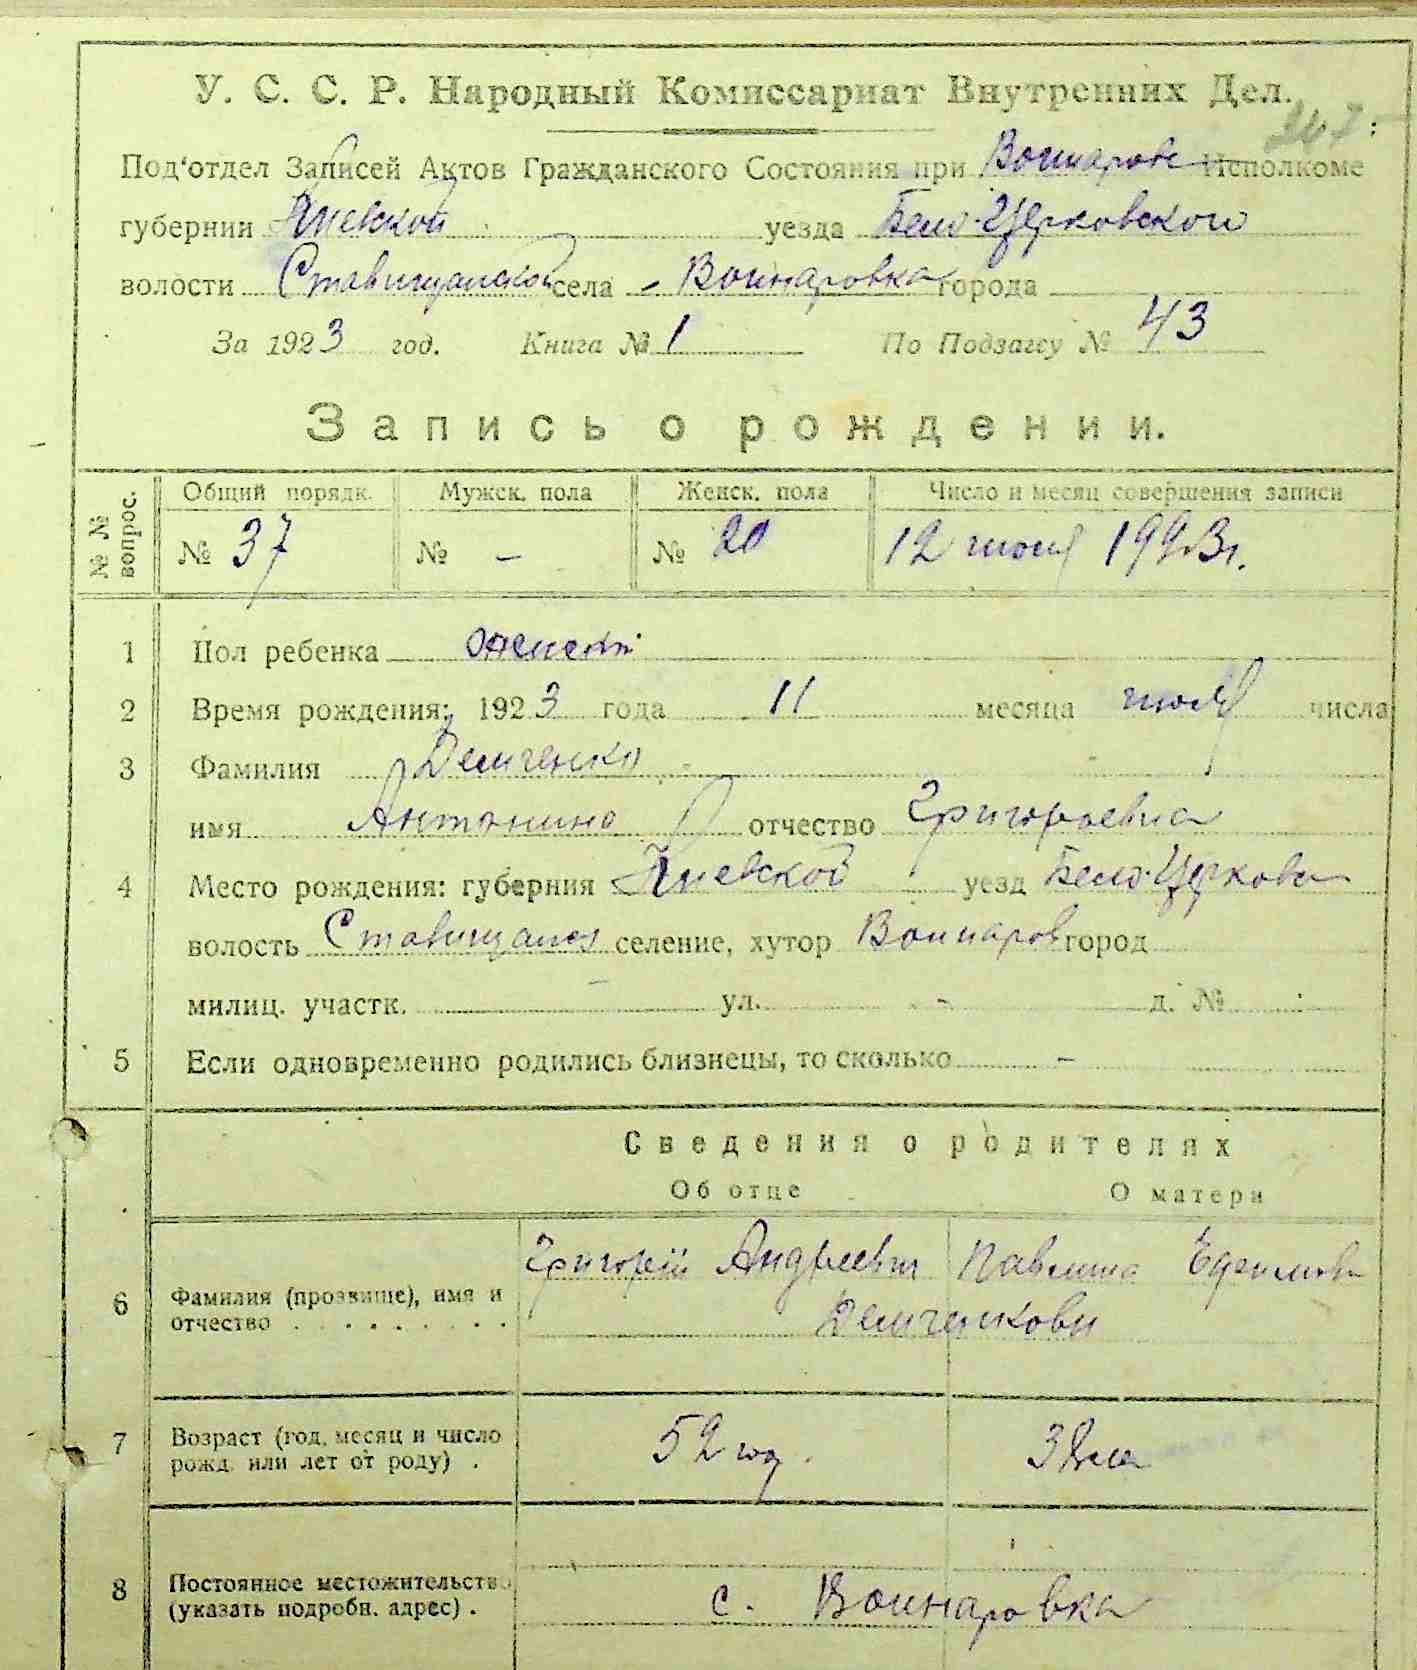 У. С. С. Р. Народный Комиссариат Внутренних Дел.
247
Под'отдел Записей Актов Гражданского Состояния при Войнаровс Исполкоме
губернии Киевской уезда Бело-Церковского
волости Ставищанской села - Войнаровка города
За 1923 год. Книга № 1 По Подзагсу № 43
Запись о рождении.
№№ вопрос. Общий порядк. Мужск. пола Женск. пола Число и месяц совершения записи
№ 37 № - № 20 12 июля 1923г.
1 Пол ребенка женски
2 Время рождения: 1923 года 11 месяца июля числа
3 Фамилия Демченко
имя Антонина отчество Григорьевна
4 Место рождения: губерния Киевской уезд Бело-Церковс
волость Ставищанск селение, хутор Войнаров город
милиц. участк. - ул. - д. №
5 Если одновременно родились близнецы, то сколько -
Сведения о родителях
Об отце О матери
6 Фамилия (прозвище), имя и отчество Григорий Андреевич Павлина Ефимовн
Демченкови
7 Возраст (год, месяц и число рожд. или лет от роду) . 52 год. 38 лет
8 Постоянное местожительство (указать подробн. адрес) . с. Войнаровка